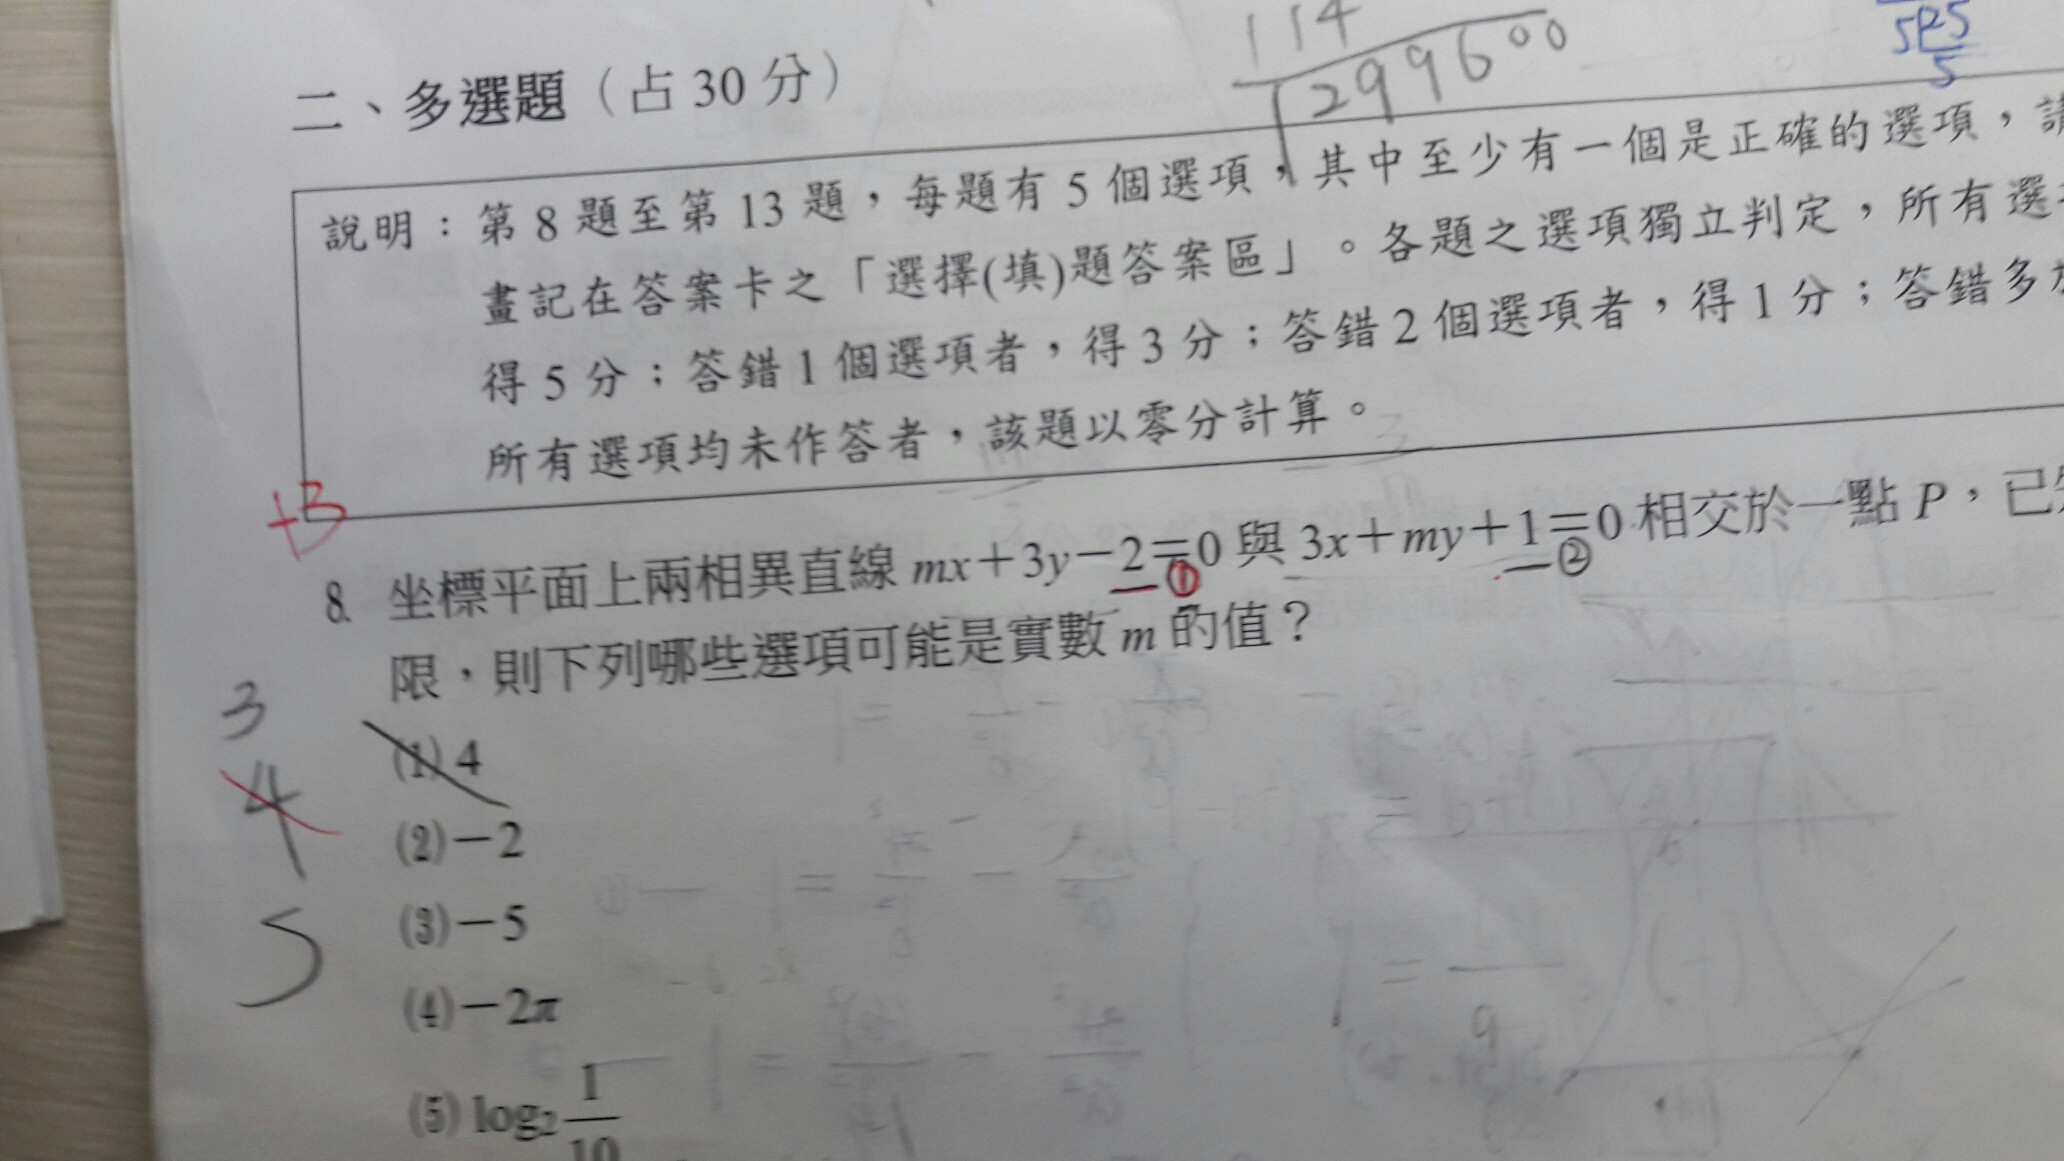 114
299600
5P5
5
二、多選題（占30分）
說明：第8題至第13題，每題有5個選項，其中至少有一個是正確的選項，請
畫記在答案卡之「選擇(填)題答案區」。各題之選項獨立判定，所有選
得5分；答錯1個選項者，得3分；答錯2個選項者，得1分；答錯多
所有選項均未作答者，該題以零分計算。
+3
8. 坐標平面上兩相異直線 mx＋3y－2＝0 與 3x＋my＋1＝0 相交於一點 P，已
① ②
限，則下列哪些選項可能是實數 m 的值？
3
(1) 4
4
(2)－2
(3)－5
5
(4)－2π
(5) log₂ 1/10